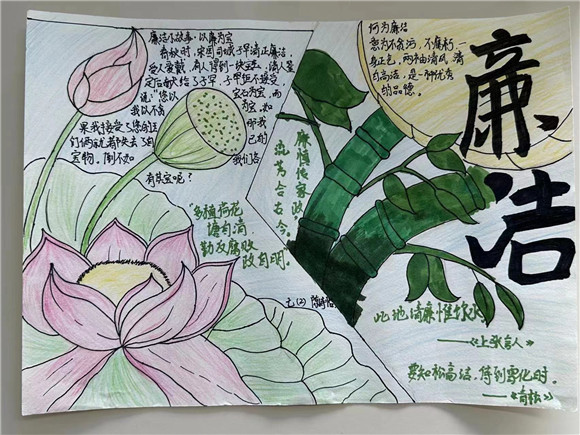 廉洁
廉洁小故事·以廉为宝
春秋时,宋国司城子罕清正廉洁,
受人爱戴。有人得到一块宝玉,请人鉴
定后献给子罕,子罕拒不接受,
说:“您以
宝石为宝,而
我以不贪
为宝。如
果我接受了您的玉,
那我
们俩就都失去了自
己的
宝物。倒不如
我们各
有其宝呢?”
何为廉洁
意为不贪污,不腐朽,一
身正色,两袖清风,清
白高洁,是一种优秀
的品德。
廉慎传家政
流芳合古今。
“多植荷花
塘有清,
勤反腐败
政自明。
七(2)
此地清廉惟饮水
——《上张舍人》
要知松高洁,待到雪化时。
——《青松》